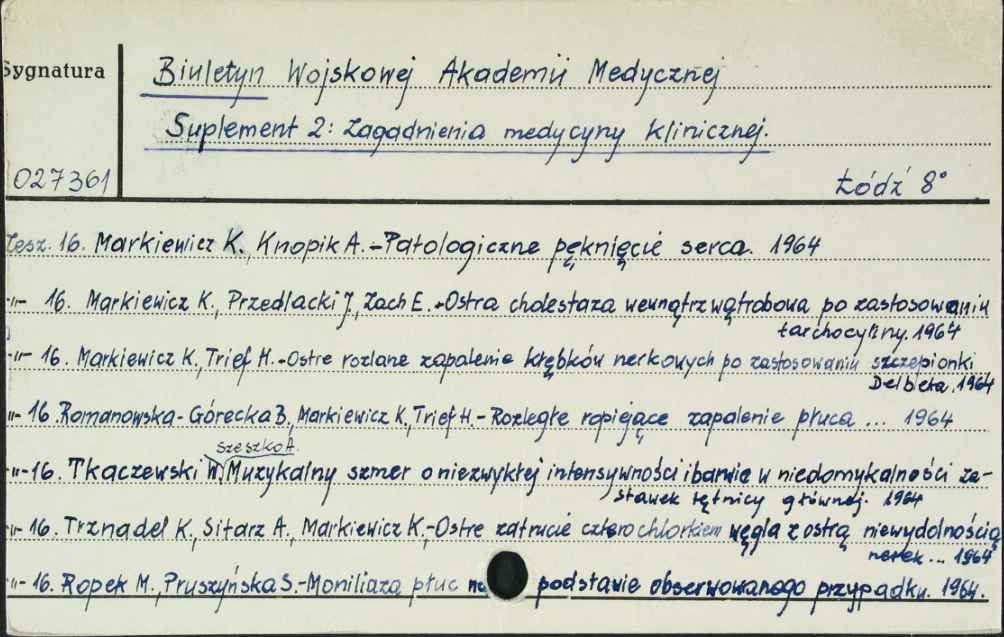 Sygnatura
Biuletyn Wojskowej Akademii Medycznej
Suplement 2: Zagadnienia medycyny klinicznej.
027361
Łódź 8°
Zesz. 16. Markiewicz K., Knopik A. - Patologiczne pęknięcie serca. 1964
-"- 16. Markiewicz K., Przedlacki J., Zach E. - Ostra cholestaza wewnątrzwątrobowa po zastosowaniu
tarchocyliny. 1964
-"- 16. Markiewicz K., Trief H. - Ostre rozlane zapalenie kłębków nerkowych po zastosowaniu szczepionki
Delbeta. 1964
-"- 16. Romanowska-Górecka B., Markiewicz K., Trief H. - Rozległe ropiejące zapalenie płuca ... 1964
Szeszko A.
-"- 16. Tkaczewski W., Muzykalny szmer o niezwykłej intensywności i barwie w niedomykalności za-
stawek tętnicy głównej. 1964
-"- 16. Trznadel K., Sitarz A., Markiewicz K. - Ostre zatrucie czterochlorkiem węgla z ostrą niewydolnością
nerek ... 1964
-"- 16. Ropek M., Pruszyńska S. - Moniliaza płuc na podstawie obserwowanego przypadku. 1964.